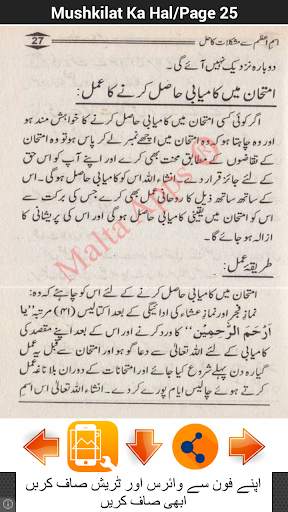 Mushkilat Ka Hal/Page 25
27
اسم اعظم سے مشکلات کا حل
دوبارہ نزدیک نہیں آئے گی۔
امتحان میں کامیابی حاصل کرنے کا عمل:
اگر کوئی کسی امتحان میں کامیابی حاصل کرنے کا خواہش مند ہو
اور وہ چاہتا ہو کہ وہ امتحان میں اچھے نمبر لے کر پاس ہو تو وہ امتحان
کے تقاضوں کے مطابق محنت بھی کرے اور اپنے آپ کو اس حق
کے لئے جائز قرار دے۔ انشاء اللہ اس کو کامیابی حاصل ہوگی۔ اس
کے ساتھ ساتھ ذیل کا روحانی عمل بھی کرے جس کی برکت سے
اس کو امتحان میں یقینی کامیابی حاصل ہوگی اور اس کی پریشانی کا
ازالہ ہو جائے گا۔
Malta Apps
طریقہ عمل:
امتحان میں کامیابی حاصل کرنے کے لئے اس کو چاہئے کہ وہ:
نماز فجر اور نماز عشاء کی ادائیگی کے بعد اکتالیس (۴۱) مرتبہ ”یا
اَرْحَمَ الرّٰحِمِیْنَ“ کا ورد کرے اور اس کے بعد اپنے مقصد کی
کامیابی کے لئے اللہ تعالیٰ سے دعا گو ہو اور امتحان سے قبل یہ عمل
گیارہ دن پہلے شروع کیا جائے اور امتحانات کے دوران بلاناغہ عمل
کرتے ہوئے چالیس ایام پورے کرے۔ انشاء اللہ تعالیٰ اس اسم
اپنے فون سے وائرس اور ٹریش صاف کریں
ابھی صاف کریں